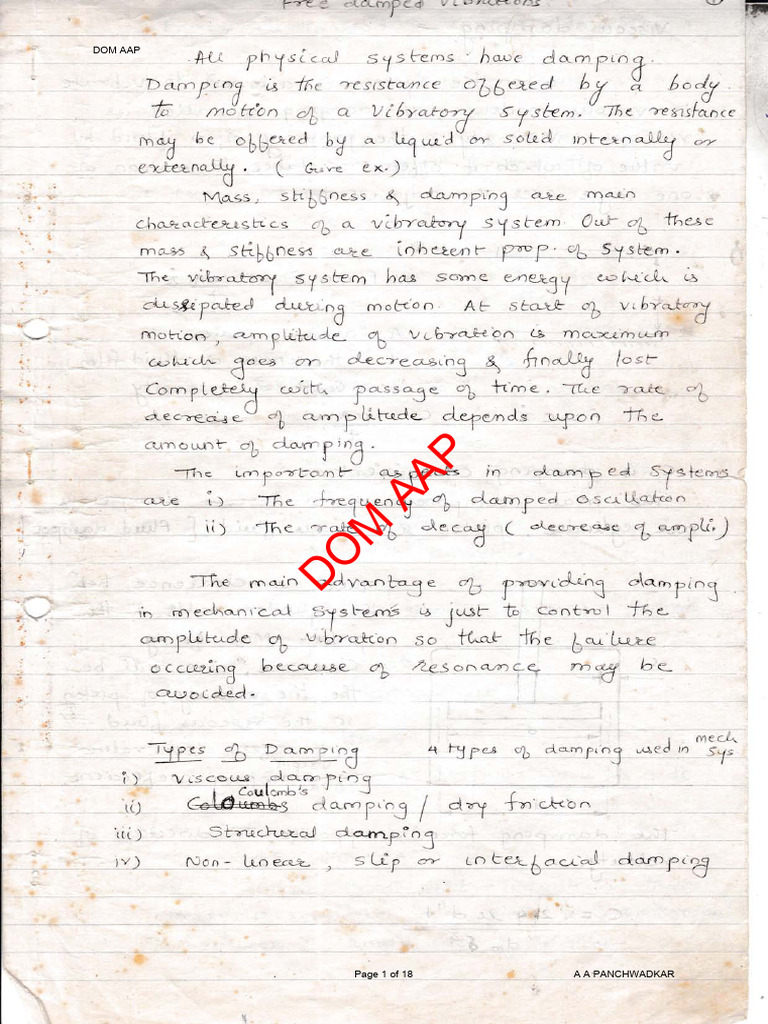 Free damped vibrations
①
DOM AAP
All physical systems have damping.
Damping is the resistance offered by a body
to motion of a vibratory system. The resistance
may be offered by a liquid or solid internally or
externally. ( Give ex.)
Mass, stiffness & damping are main
characteristics of a vibratory system. Out of these
mass & stiffness are inherent prop. of system.
The vibratory system has some energy which is
dissipated during motion. At start of vibratory
motion, amplitude of vibration is maximum
which goes on decreasing & finally lost
completely with passage of time. The rate of
decrease of amplitude depends upon the
amount of damping.
The important aspects in damped systems
are i) The frequency of damped oscillation
ii) The rate of decay ( decrease of ampli.)
DOM AAP
The main advantage of providing damping
in mechanical systems is just to control the
amplitude of vibration so that the failure
occuring because of resonance may be
avoided.
Types of Damping 4 types of damping used in mech sys
i) viscous damping
ii) Coulomb's damping / dry friction
iii) Structural damping
iv) Non-linear, slip or interfacial damping
Page 1 of 18 A A PANCHWADKAR